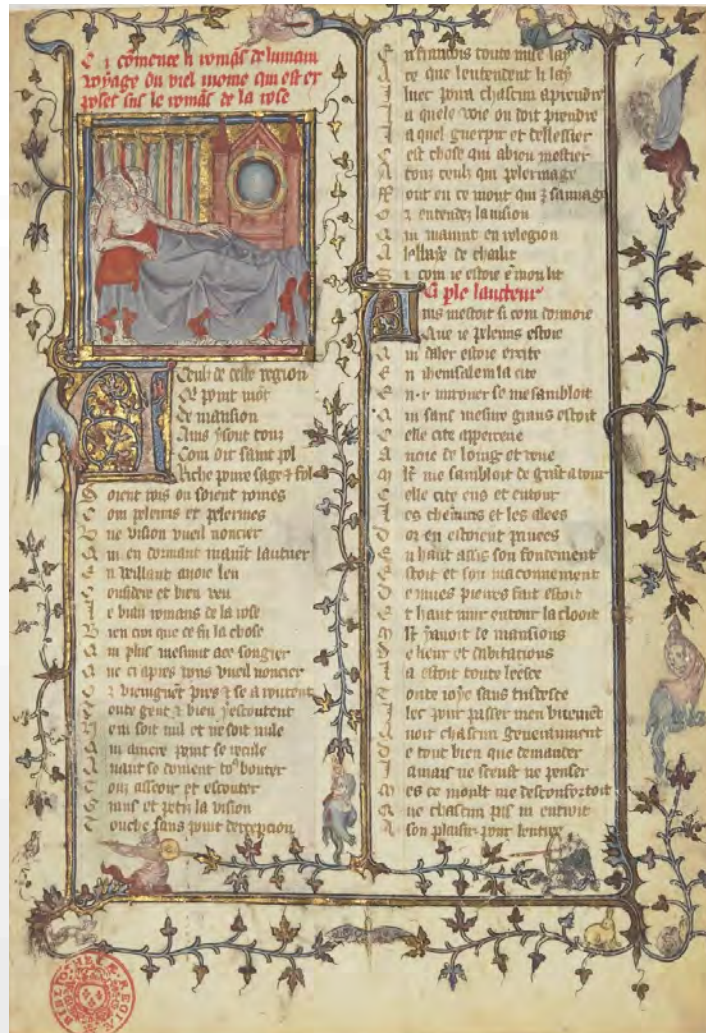 Ci cōmence li romās de lumain
voyage du viel mome qui est ex
poset sus le romās de la rose
A Ceulz de ceste region
Qi point nōt
de mansion
Ains y sont touz
Com dit saint pol
Riche poure sage et fol
Soient rois ou soient roines
Com pelerins et pelerines
Une vision vueil noncier
en dormant mavīt lautrier
En veillant avoie leu
Considere et bien veu
Le biau romans de la rose
Bien croi que ce fu la chose
plus mesmut a ce songier
ci apres vous vueil noncier
Or viengnēt pres et se aroutent
Toute gent et bien escoutent
Ne soit nul et ne soit nule
arriere point se recule
Avant se doivent bouter
Touz asseoir et escouter
Grans et petiz la vision
Touche sans point decepcion
En francois toute mise lay
A ce que lentendent li lay
Illuec pourra chascun aprendre
La quele voie on doit prendre
La quel guerpir et delessier
Cest chose qui a bien mestier
A touz ceulz qui pelerinage
Font en ce mont qui sauvage
Or entendez la vision
mavint en religion
A labbaye de chalit
Si com ie estoie ē mon lit
laucteur
Avis mestoit si com dormoie
Que ie pelerins estoie
daler estoie excite
En iherusalem la cite
En .i. mirouer se me sambloit
sans mesure grans estoit
Celle cite apperceue
Avoie de loing et veue
Mlt me sambloit de grāt atour
Celle cite ens et entour
Les chemins et les alees
Dor en estoient pavees
En haut assis son fondement
Estoit et son maconnement
De vives pierres fait estoit
Et haut mur entour la clooit
Mlt y avoit de mansions
De lieux et dabitations
La estoit toute leesce
Toute ioye sans tristesce
Ilec pour passer men briemēt
Avoit chascun generaument
De tout bien que demander
Iamais ne sceust ne penser
Mes ce moult me desconfortoit
chascun pas ni entroit
A son plaisir pour lentree